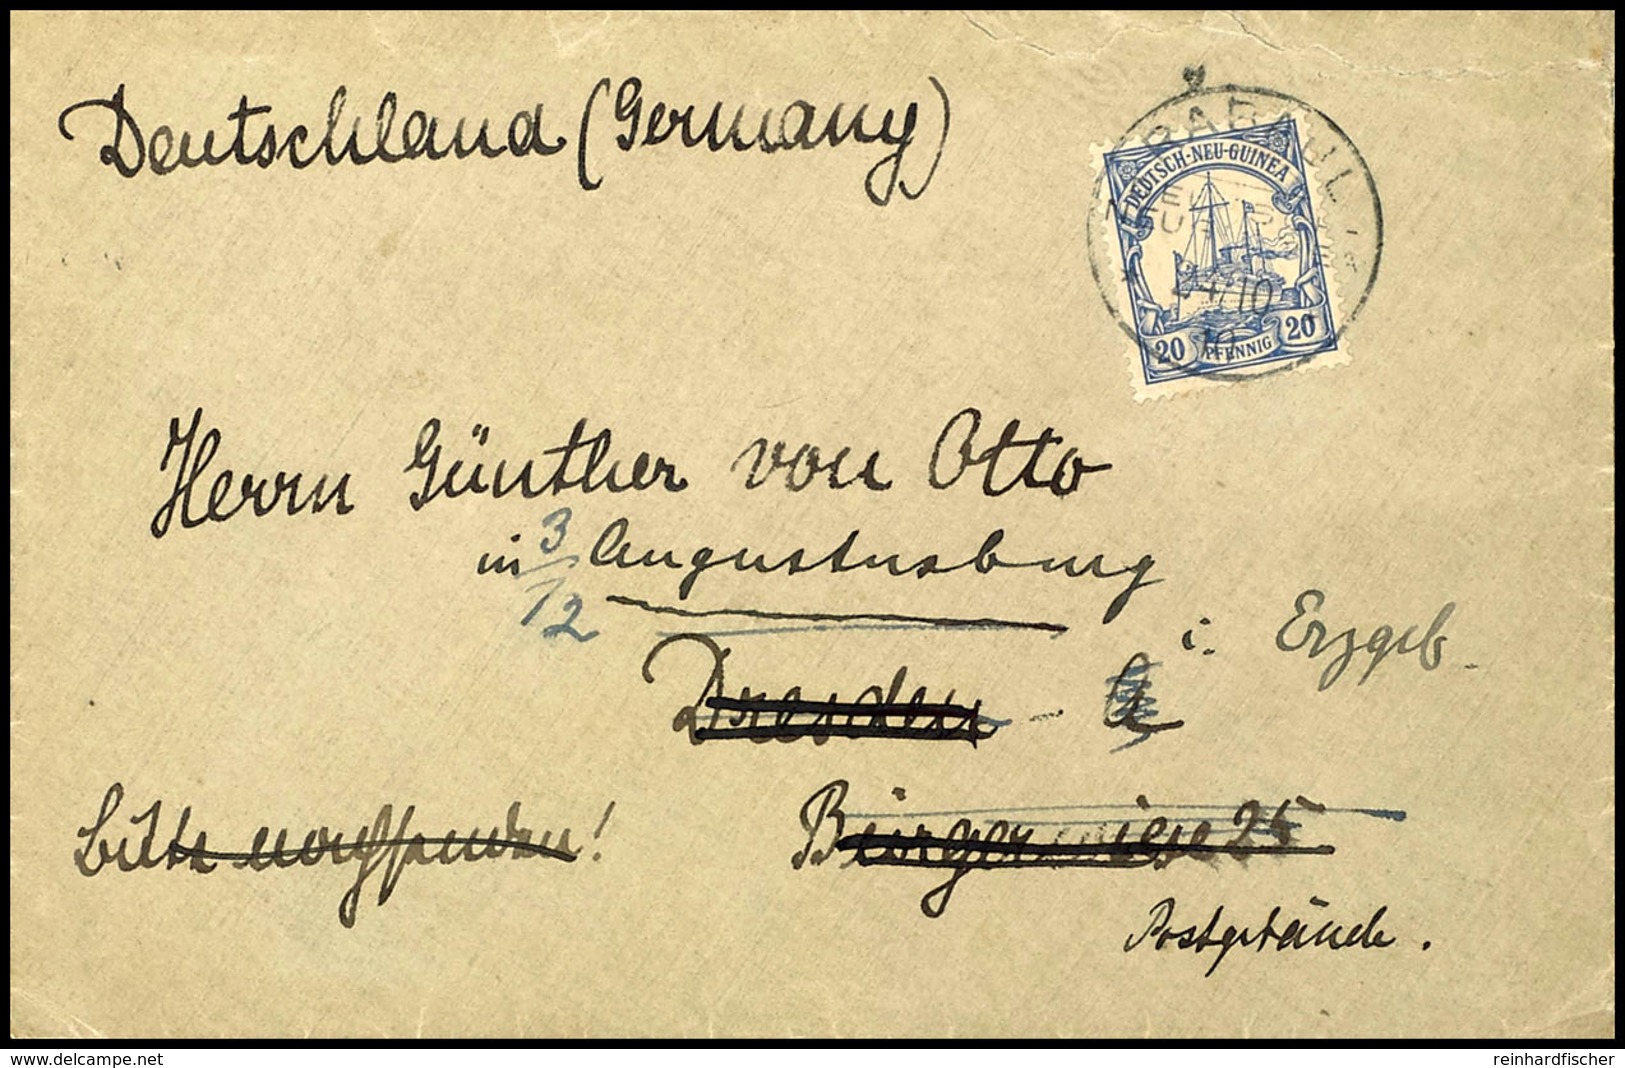 Deutschland (Germany)
RABAUL
DEUTSCH-NEU-GUINEA
24/10
10
20 PFENNIG 20
Herrn Günther von Otto
in Augustusburg
3/12
i. Erzgeb.
Dresden - A
bitte nachsenden!
Bürgerwiese 25
www.delcampe.net
reinhardfischer